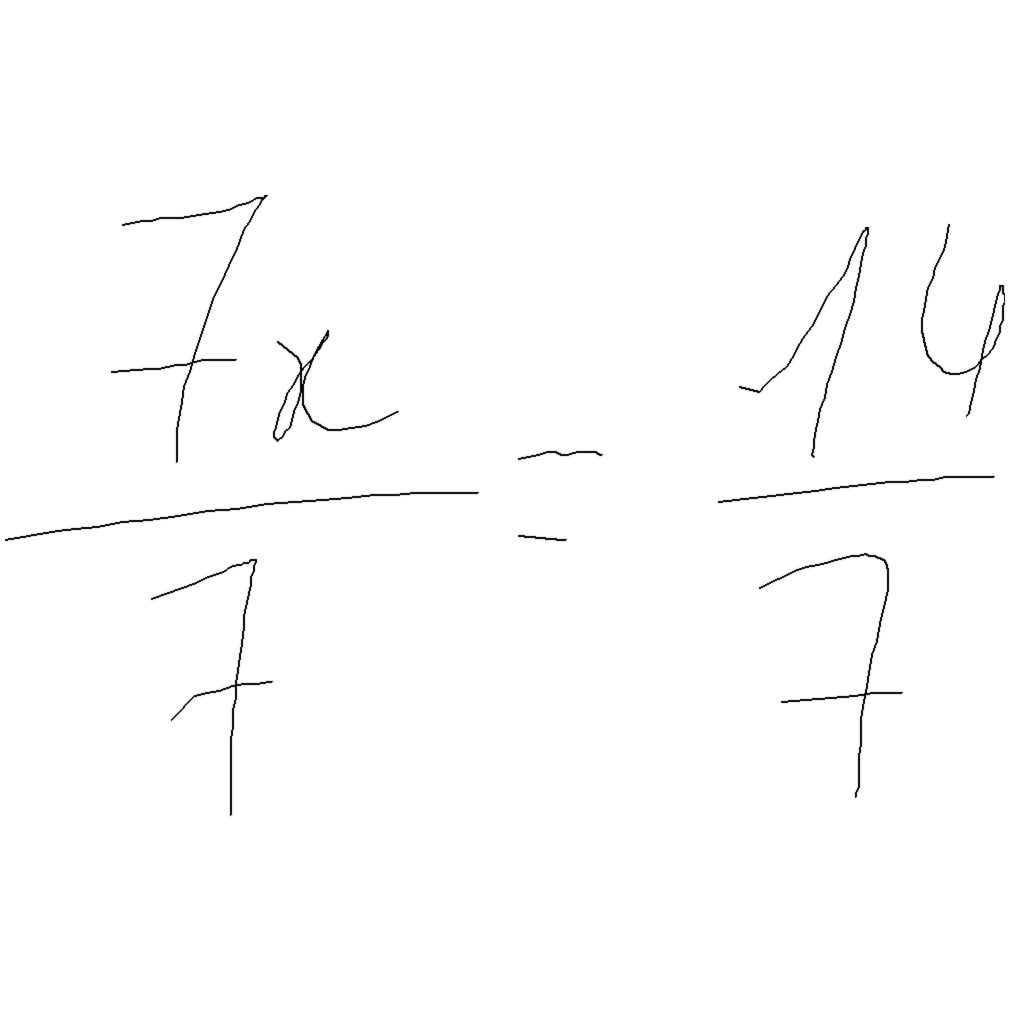 \frac{7x}{7} = \frac{14}{7}